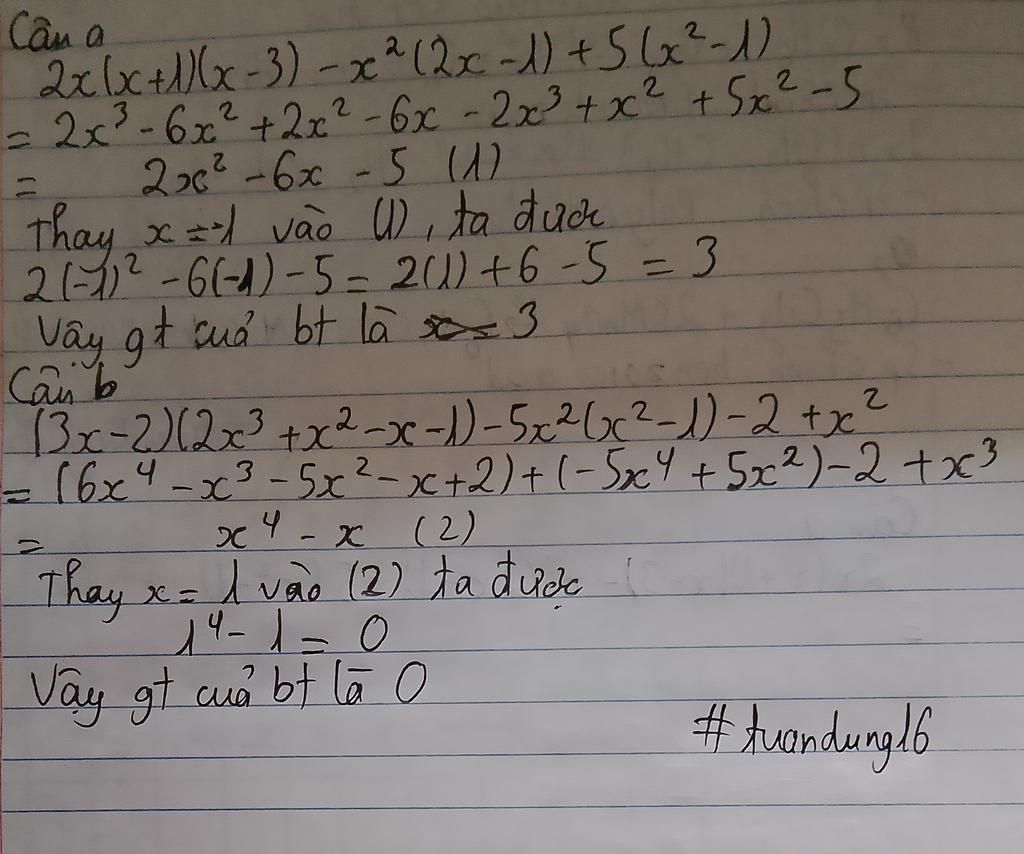 Câu a
2x(x+1)(x-3) - x²(2x-1) + 5(x²-1)
= 2x³ - 6x² + 2x² - 6x - 2x³ + x² + 5x² - 5
= 2x² - 6x - 5 (1)
Thay x = -1 vào (1), ta được
2(-1)² - 6(-1) - 5 = 2(1) + 6 - 5 = 3
Vậy gt cuả bt là 3
Câu b
(3x-2)(2x³ + x² - x - 1) - 5x²(x² - 1) - 2 + x²
= (6x⁴ - x³ - 5x² - x + 2) + (-5x⁴ + 5x²) - 2 + x³
= x⁴ - x (2)
Thay x = 1 vào (2) ta được
1⁴ - 1 = 0
Vậy gt cuả bt là 0
#tuandung16